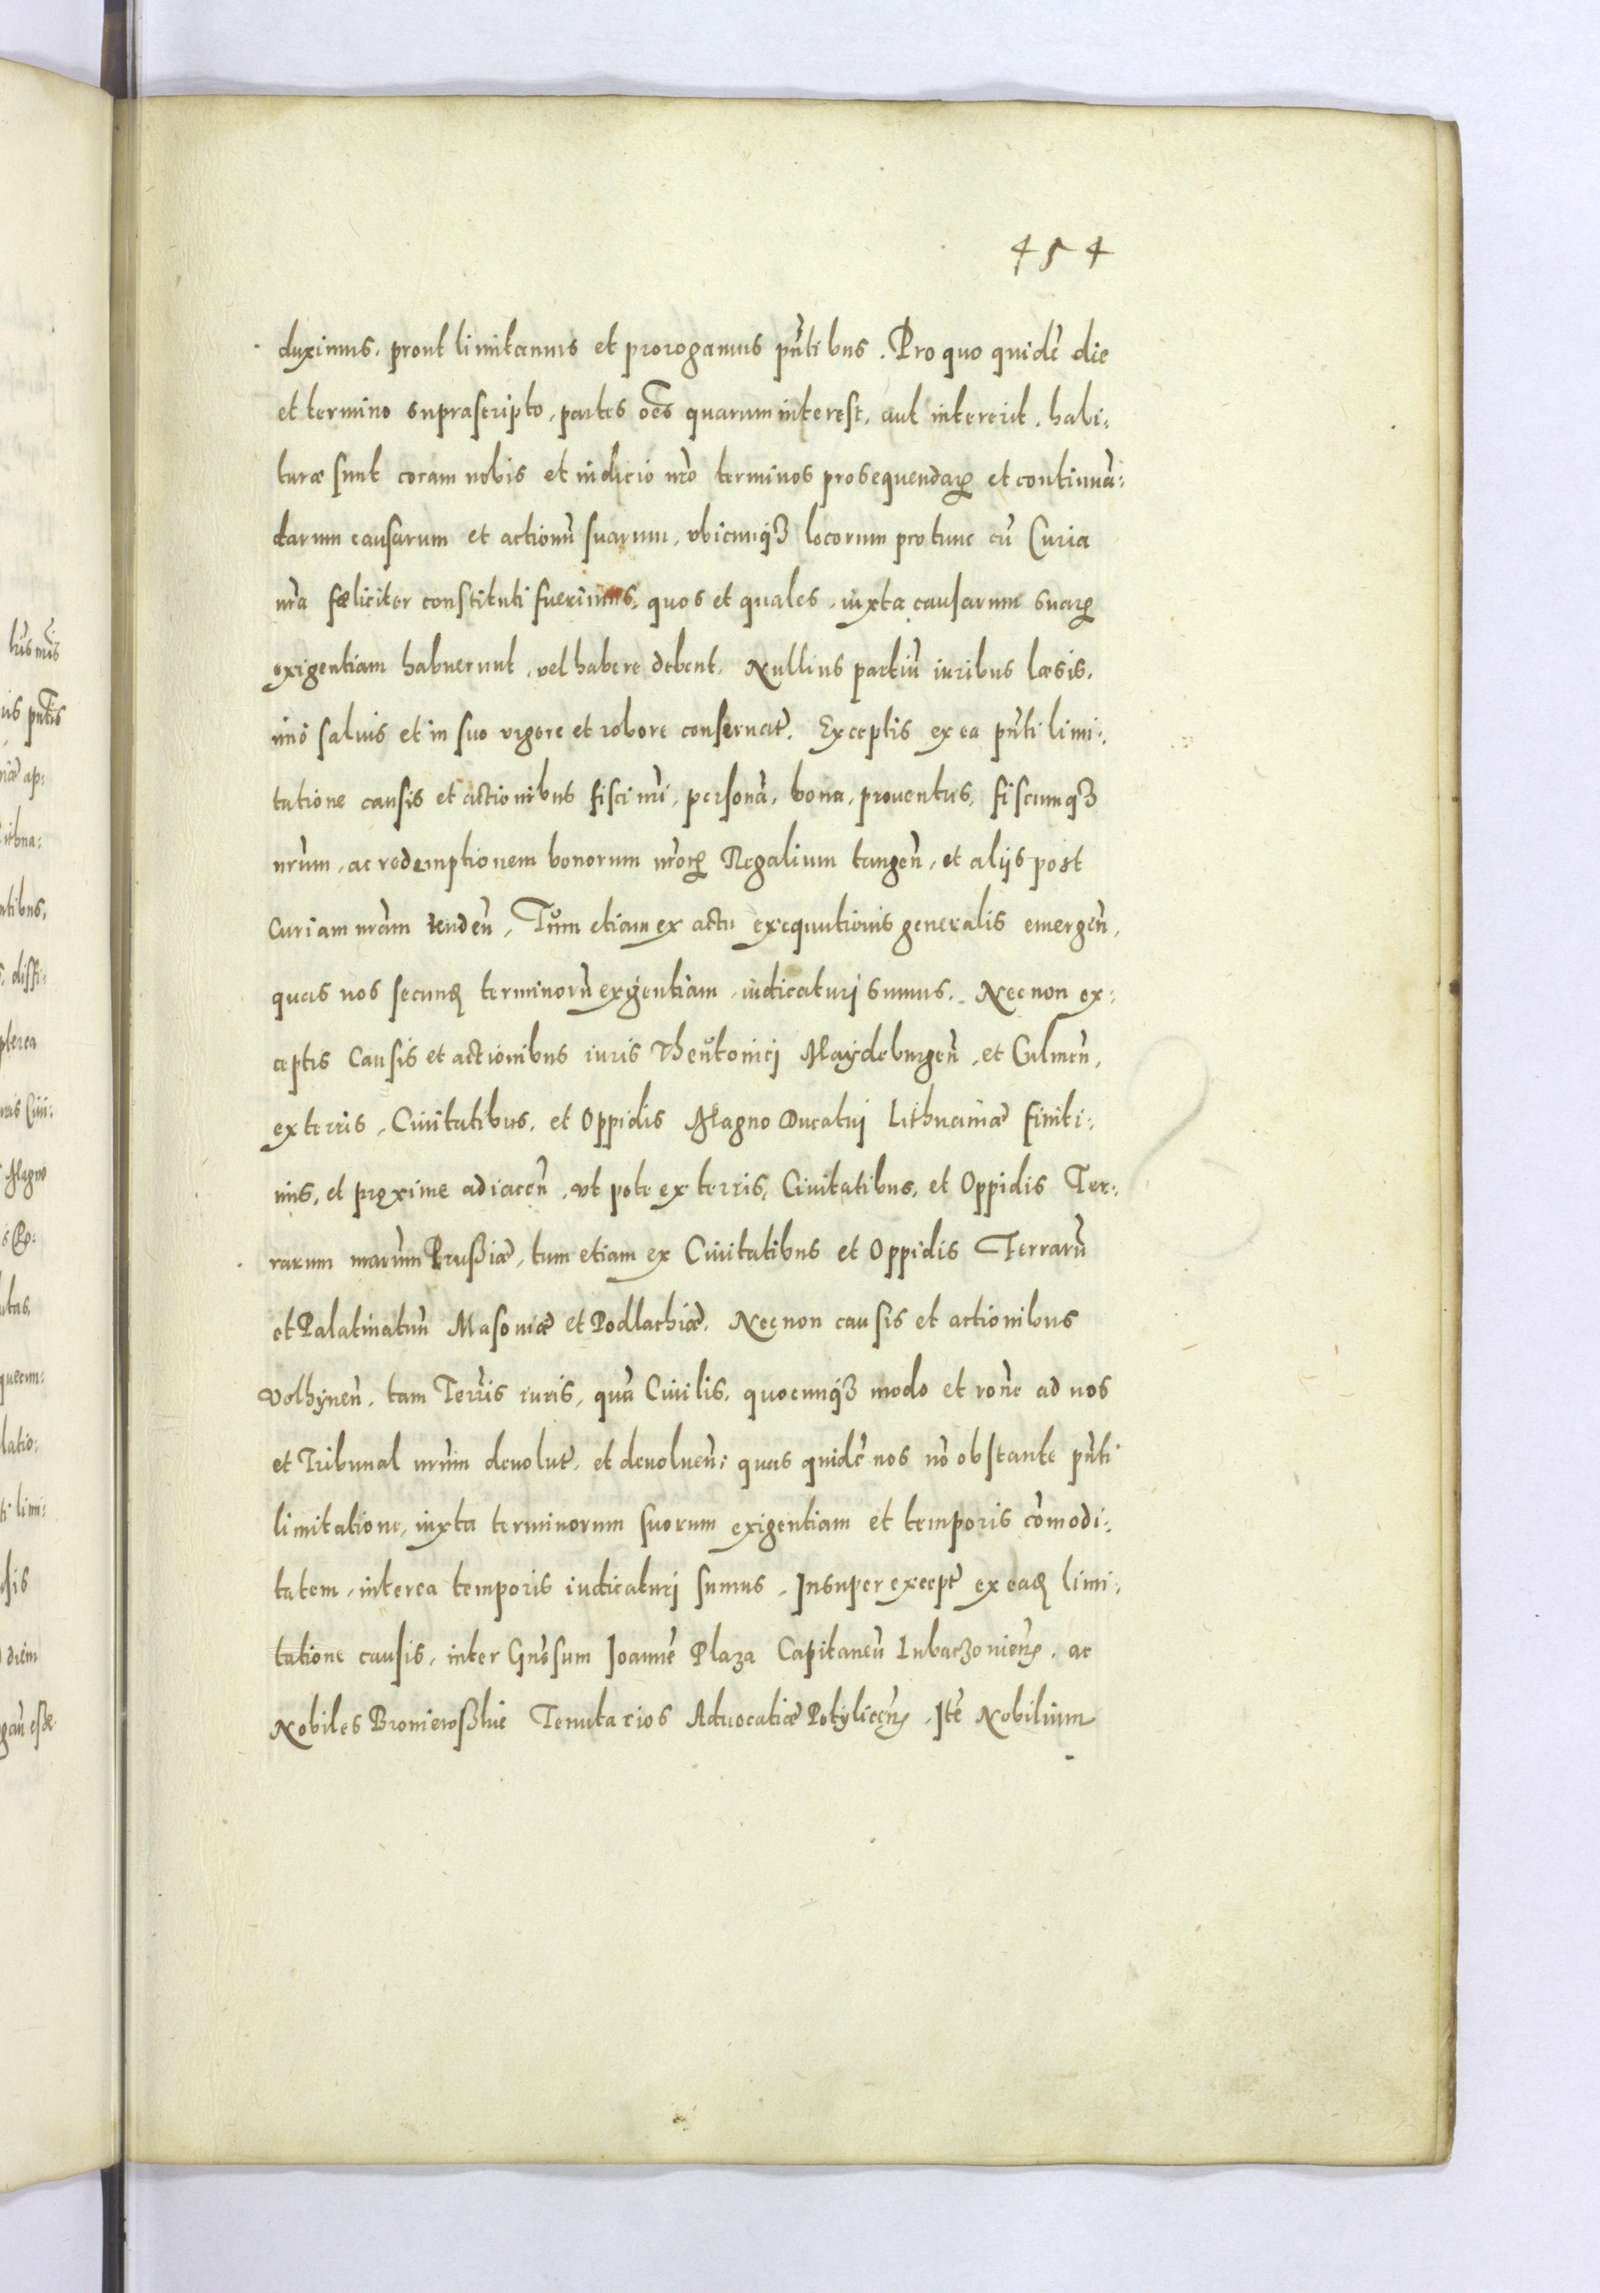 454
duximus, prout limitamus et prorogamus pñtibus. Pro quo quidẽ die
et termino suprascripto, partes oẽs quarum interest, aut intererit, habi:
turæ sunt coram nobis et iudicio nr̃o terminos prosequendaꝝ et continuã:
darum causarum et actionũ suarum, vbicunqꝫ locorum protunc cũ Curia
nr̃a fœliciter constituti fuerimus, quos et quales, iuxta causarum suaꝝ
exigentiam habuerunt, vel habere debent. Nullius partiũ iuribus læsis,
imò saluis et in suo vigore et robore conseruat̃. Exceptis ex ea pñti limi:
tatione causis et actionibus fisci nr̃i, personã, bona, prouentus, fiscumqꝫ
nr̃um, ac redemptionem bonorum nr̃oꝝ Regalium tangeñ, et alijs post
Curiam nr̃am tendeñ, Tùm etiam ex actu exequutionis generalis emergeñ,
quas nos secunđ terminorũ exigentiam, iudicaturi sumus. Necnon ex:
ceptis Causis et actionibus iuris Theŭtonici Maÿdeburgeñ, et Culmeñ,
ex terris, Ciuitatibus, et Oppidis Magno Ducatuj Lithuaniæ finiti:
mis, et proxime adiaceñ, vt pote ex terris, Ciuitatibus, et Oppidis Ter:
rarum nr̃arum Prußiæ, tum etiam ex Ciuitatibus et Oppidis Terrarũ
et Palatinatuũ Masouiæ et Podlachiæ. Necnon causis et actionibus
Volhÿneñ, tam Terr̃is iuris, quã Ciuilis, quocunqꝫ modo et rõne ad nos
et Tribunal nr̃um deuolut̃, et deuoluen̄: quas quidẽ nos nõ obstante pñti
limitatione, iuxta terminorum suorum exigentiam et temporis cõmodi:
tatem, interea temporis iudicaturi sumus, Insuper except̃ ex eađ limi:
tatione causis, inter Gñosum Ioannẽ Plaza Capitaneũ Lubaczouieñ, ac
Nobiles Bronieroßkie Tenutarios Aduocatiæ Potÿliceñ, Itẽ Nobilium